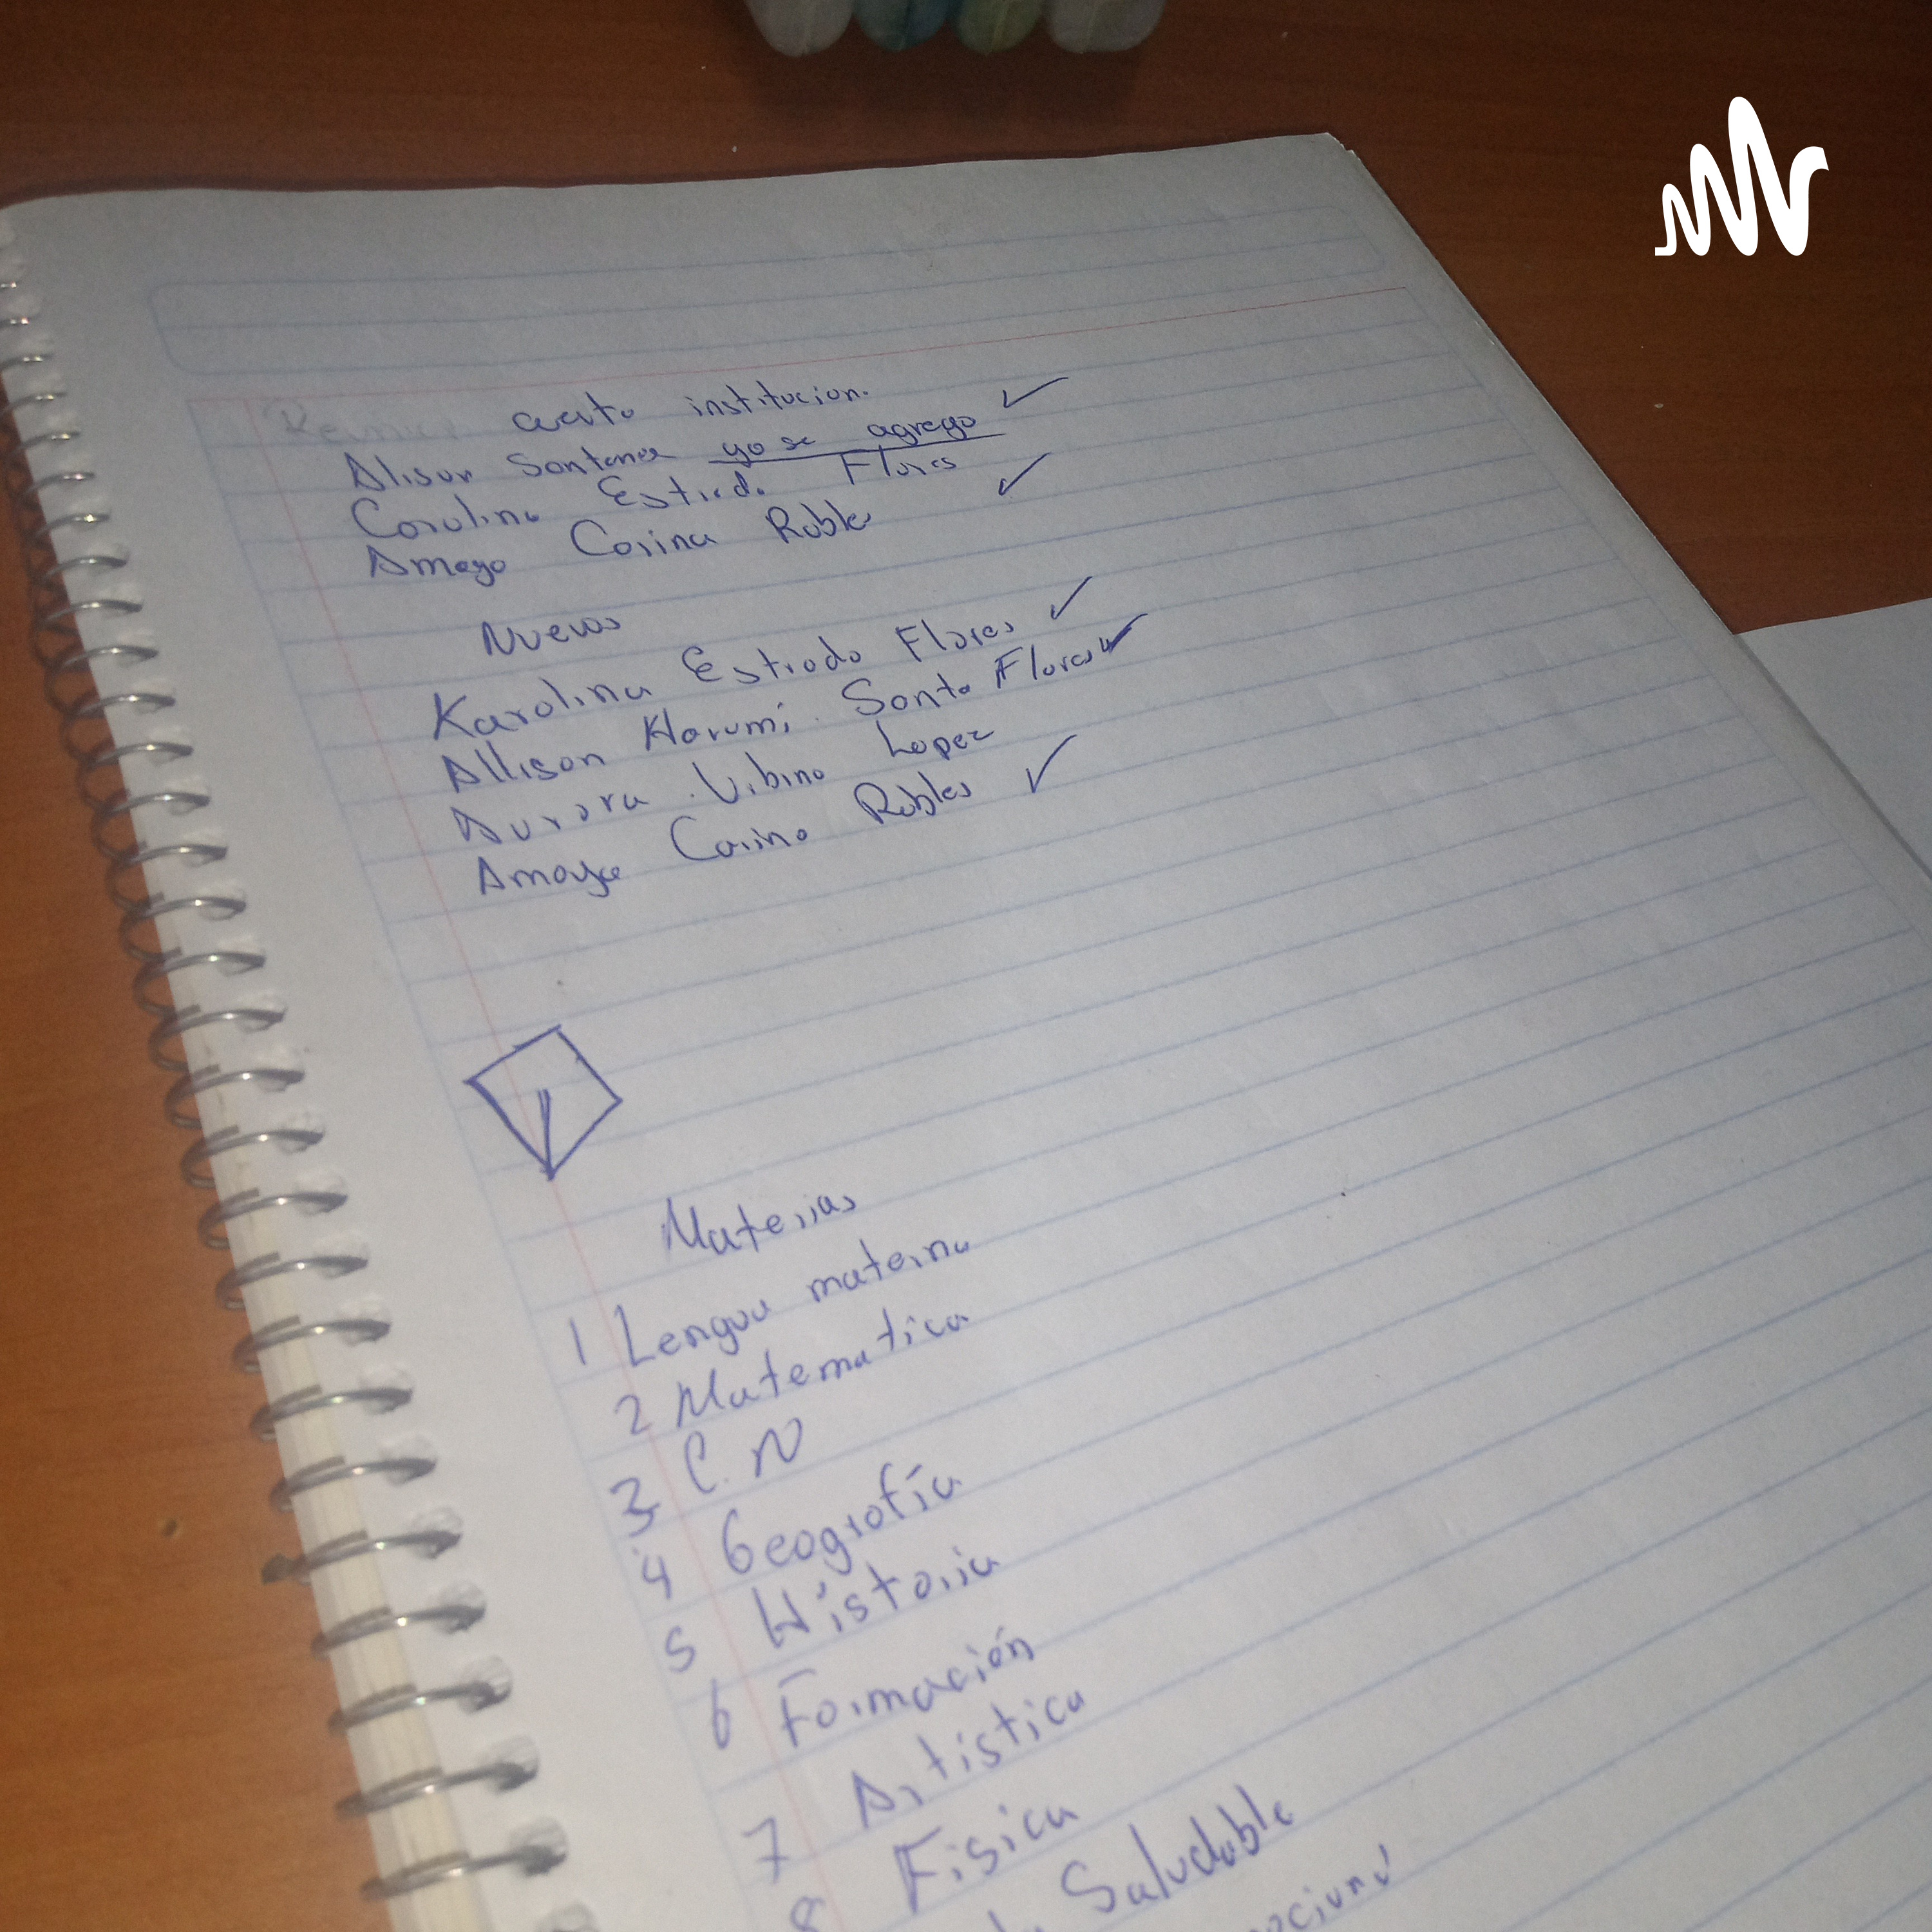 cuenta institucion.
Alison Santana ya se agrego
Carolina Estrada Flores
Amaya Carina Robles
Nuevas
Karolina Estrada Flores
Allison Harumi Santa Flores
Aurora Lopez
Amaya Carina Robles
Materias
1 Lengua materna
2 Matematica
3 C.N
4 Geografía
5 Historia
6 Formación
7 Artistica
8 Fisica
Saludable